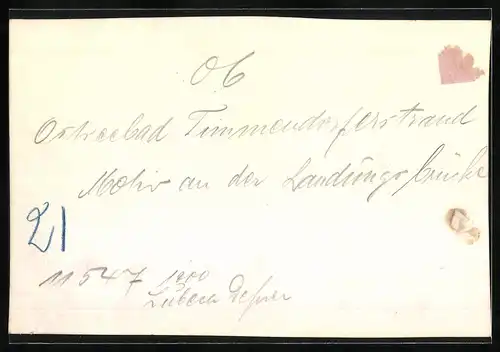 06
Ostseebad Timmendorferstrand
Motiv an der Landungsbrücke
21
11547 1000
Lübeck